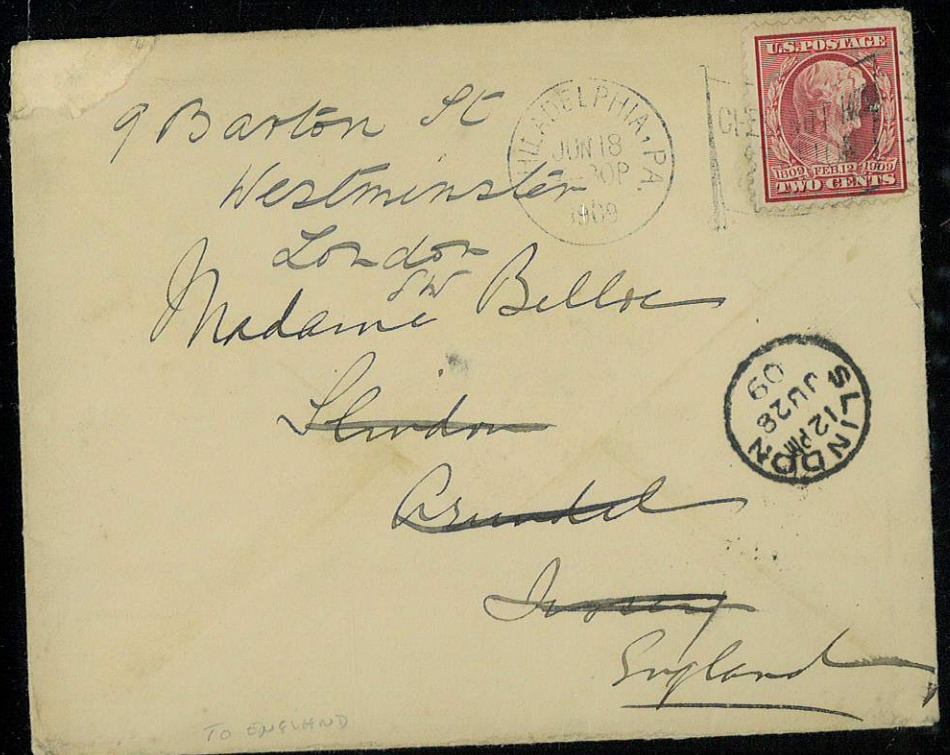 9 Barton St
Westminster
London
SW
Madame Belloc
Slindon
Arundel
England
PHILADELPHIA, PA.
JUN 18
30P
1909
U.S. POSTAGE
1809 FEB. 12 1909
TWO CENTS
SLINDON
12 PM
JU 28
09
TO ENGLAND